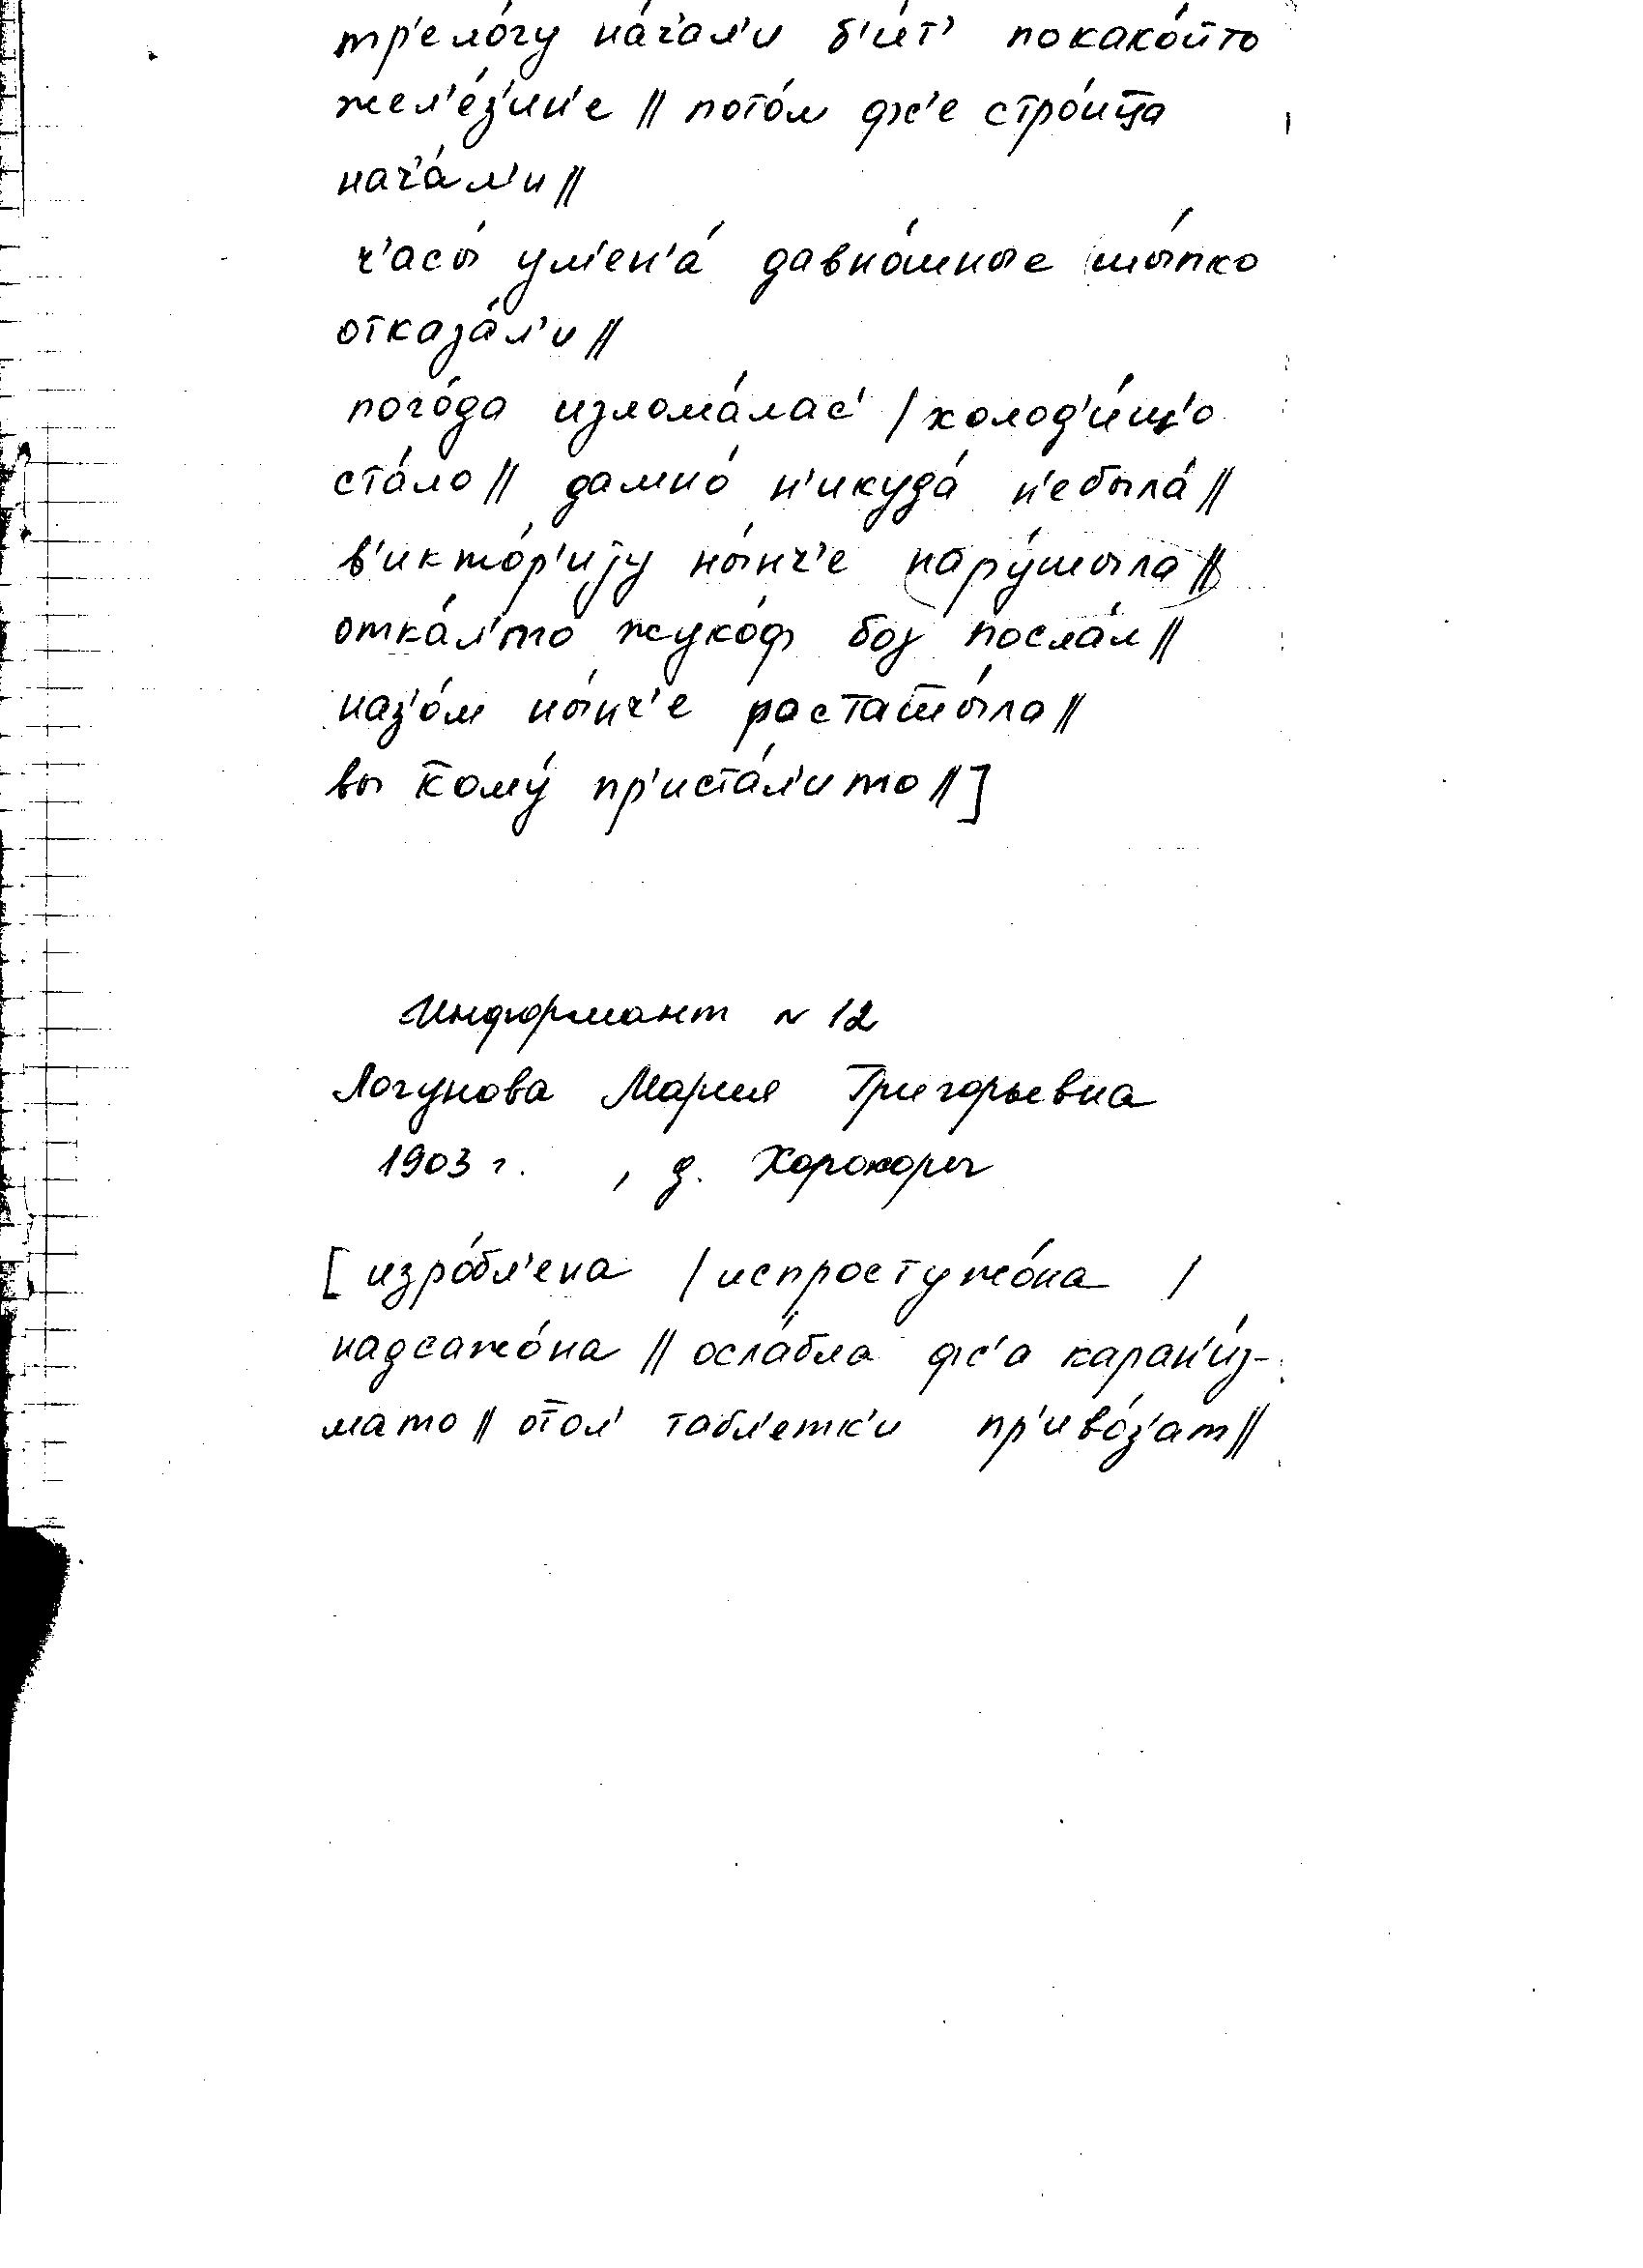 тр'ело́гу на́ч'ал'и б'ит' покако́йто
жел'е́з'ин'е || пото́м фс'е стро́ица
нач'а́л'и ||
ч'асы́ ум'ен'а́ давно́шные шы́пко
отказа́л'и ||
пого́да излома́лас' / холод'и́щ'о
ста́ло || дамно́ н'икуда́ н'ебыла́ ||
в'икто́р'иjу ны́нч'е нару́шыла ||
отка́л'то жуко́ф бог посла́л ||
наз'о́м ны́нч'е растаты́ла ||
вы кому́ пр'иста́л'ито || ]
Информант № 12
Логунова Мария Григорьевна
1903 г. , д. Хорохоры
[ изро́бл'ена / испростужо́на /
надсажо́на || осла́бла фс'а каран'и́з-
мато || отол' табл'етк'и пр'иво́з'ат ||